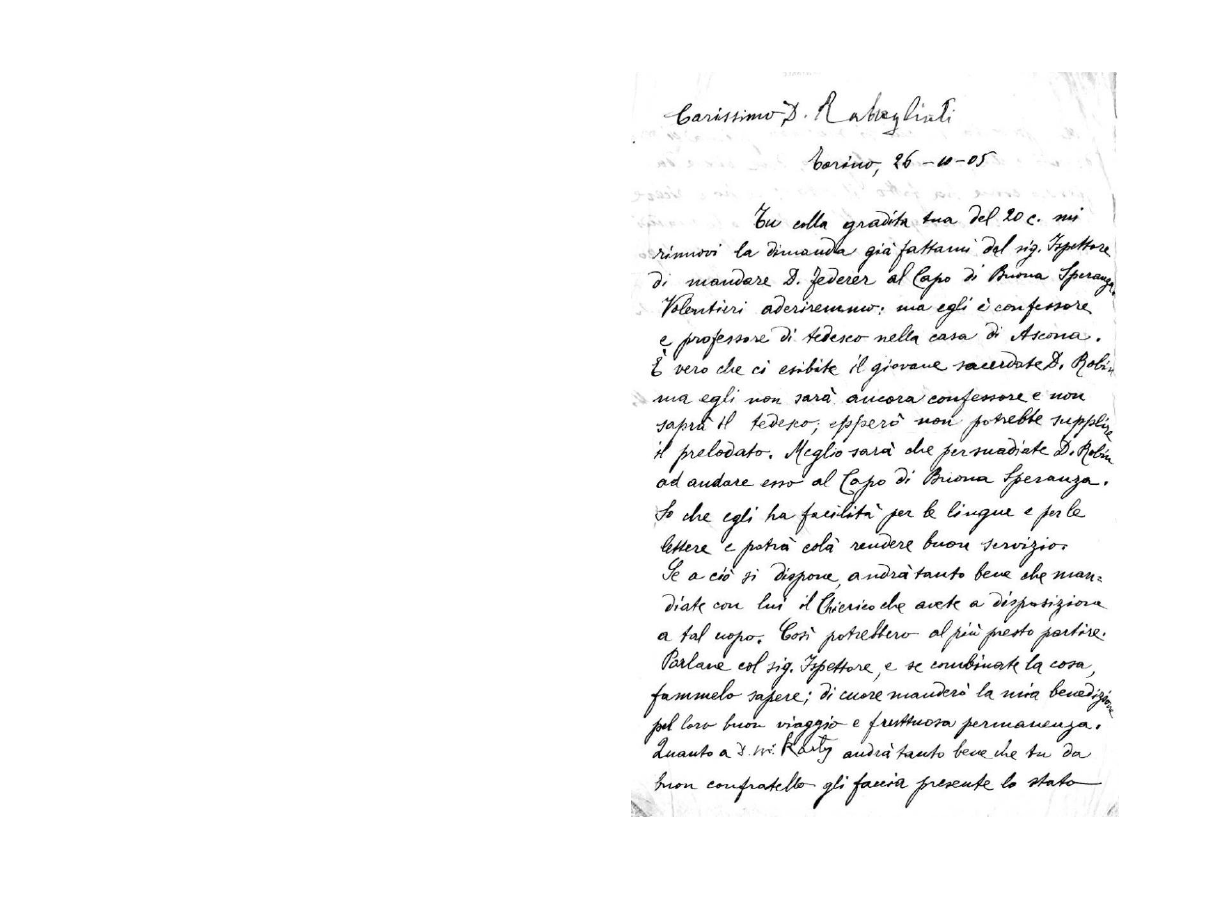 Carissimo D. Rabagliati
Torino, 26-10-05
Tu colla gradita tua del 20 c. mi
rinnovi la dimanda già fattami dal sig. Ispettore
di mandare D. Federer al Capo di Buona Speranza.
Volentieri aderiremmo: ma egli è confessore
e professore di tedesco nella casa di Ascona.
È vero che ci esibite il giovane sacerdote D. Robin
ma egli non sarà ancora confessore e non
saprà il tedesco; epperò non potrebbe supplire
il prelodato. Meglio sarà che persuadiate D. Robin
ad andare esso al Capo di Buona Speranza.
So che egli ha facilità per le lingue e per le
lettere e potrà colà rendere buon servizio.
Se a ciò si dispone, andrà tanto bene che man=
diate con lui il Chierico che avete a disposizione
a tal uopo. Così potrebbero al più presto partire.
Parlane col sig. Ispettore, e se combinate la cosa,
fammelo sapere; di cuore manderò la mia benedizione
pel loro buon viaggio e fruttuosa permanenza.
Quanto a D. andrà tanto bene che tu da
buon confratello gli faccia presente lo stato